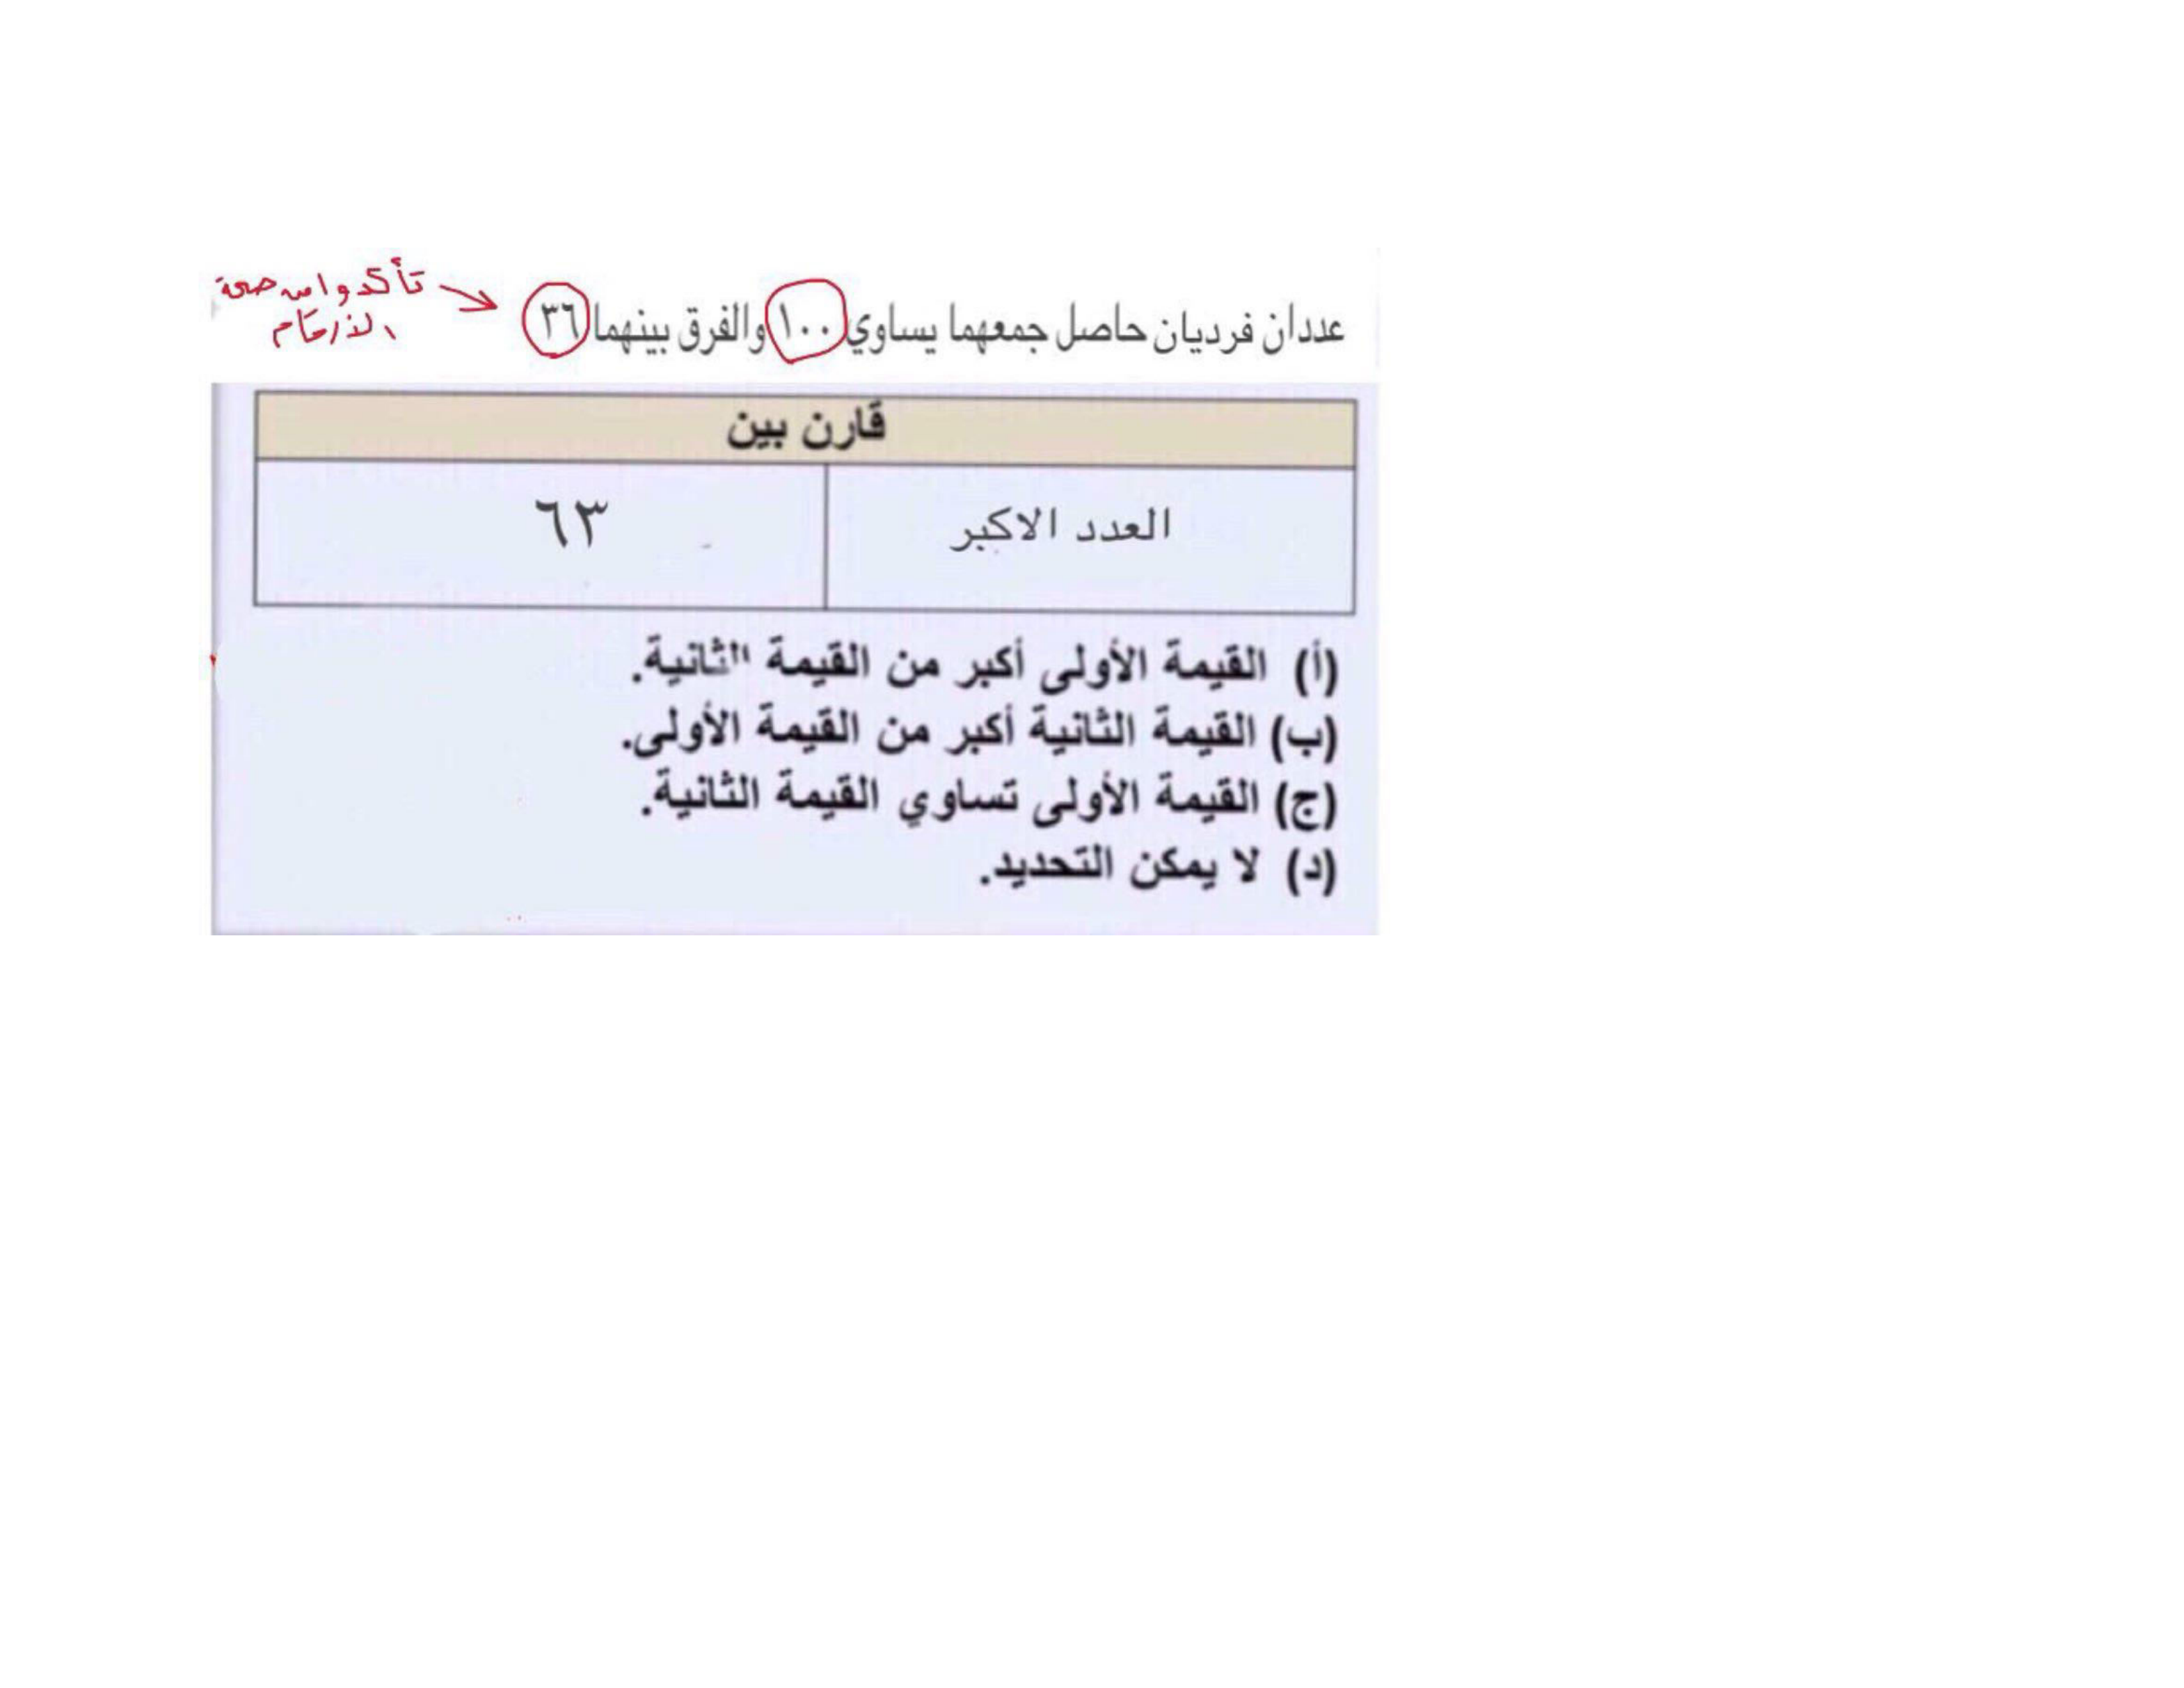 تأكدوا من صحة
الأرقام
عددان فرديان حاصل جمعهما يساوي ١٠٠ والفرق بينهما ٣٦
قارن بين
العدد الاكبر ٦٣
(أ) القيمة الأولى أكبر من القيمة الثانية.
(ب) القيمة الثانية أكبر من القيمة الأولى.
(ج) القيمة الأولى تساوي القيمة الثانية.
(د) لا يمكن التحديد.